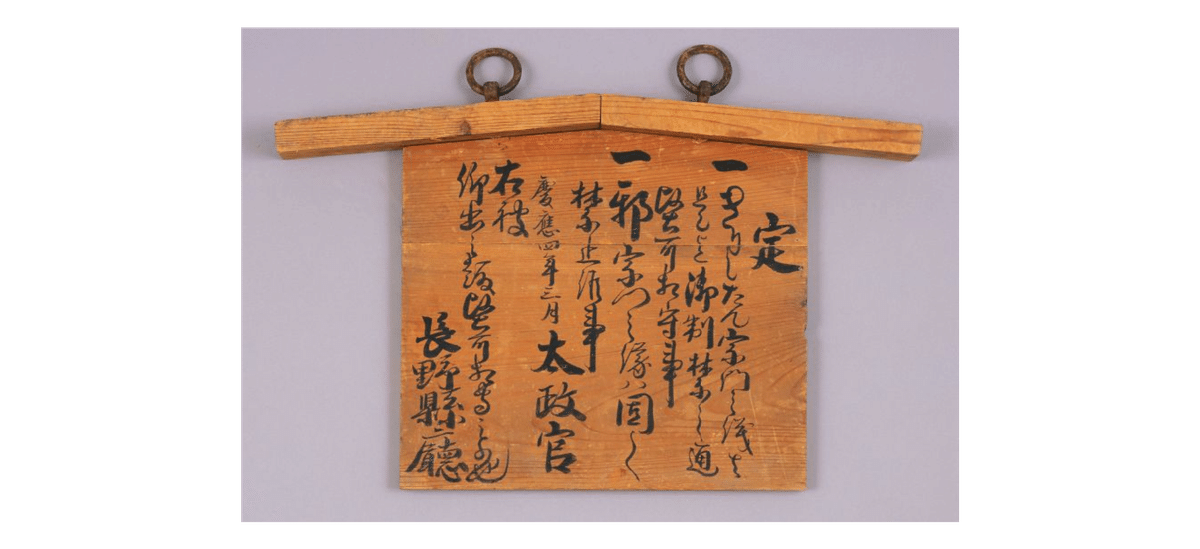 定
一 きりしたん宗門之儀者
是迄御制禁之通
堅可相守事
一 邪宗門之儀ハ固く
禁止候事
慶應四年三月 太政官
右被
仰出之趣堅可相守もの也
長野縣廳